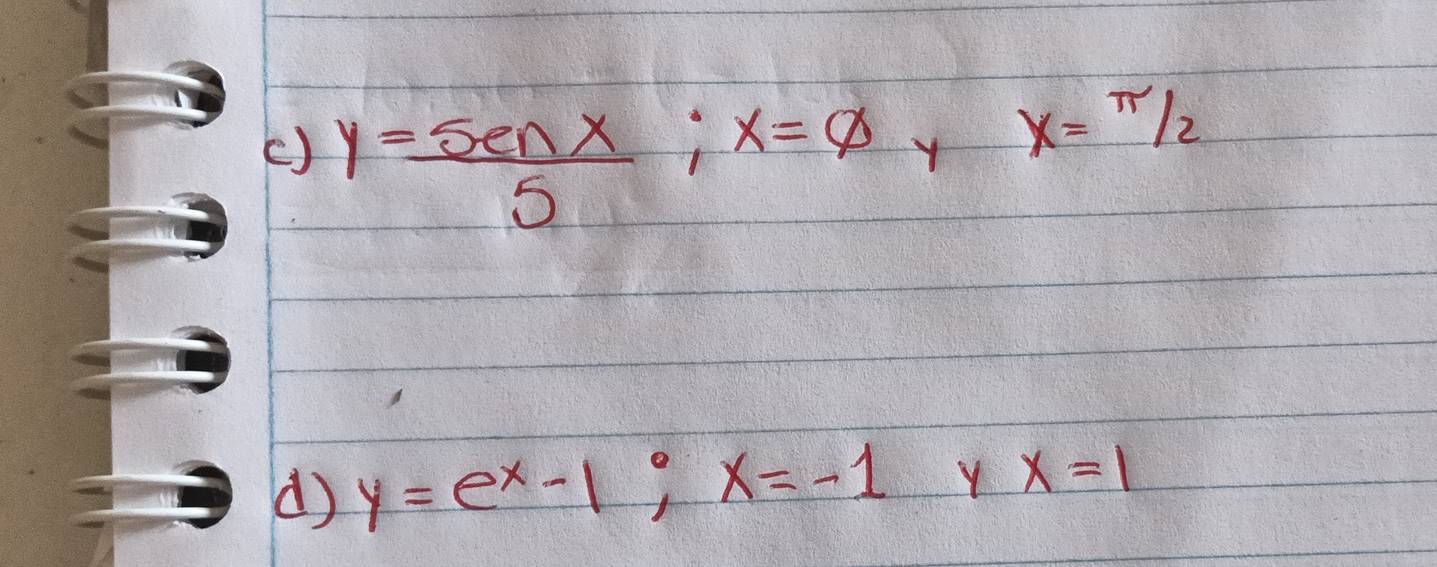 c) y = sen x / 5 ; x = Ø y x = π/2
d) y = eˣ - 1 ; x = -1 y x = 1